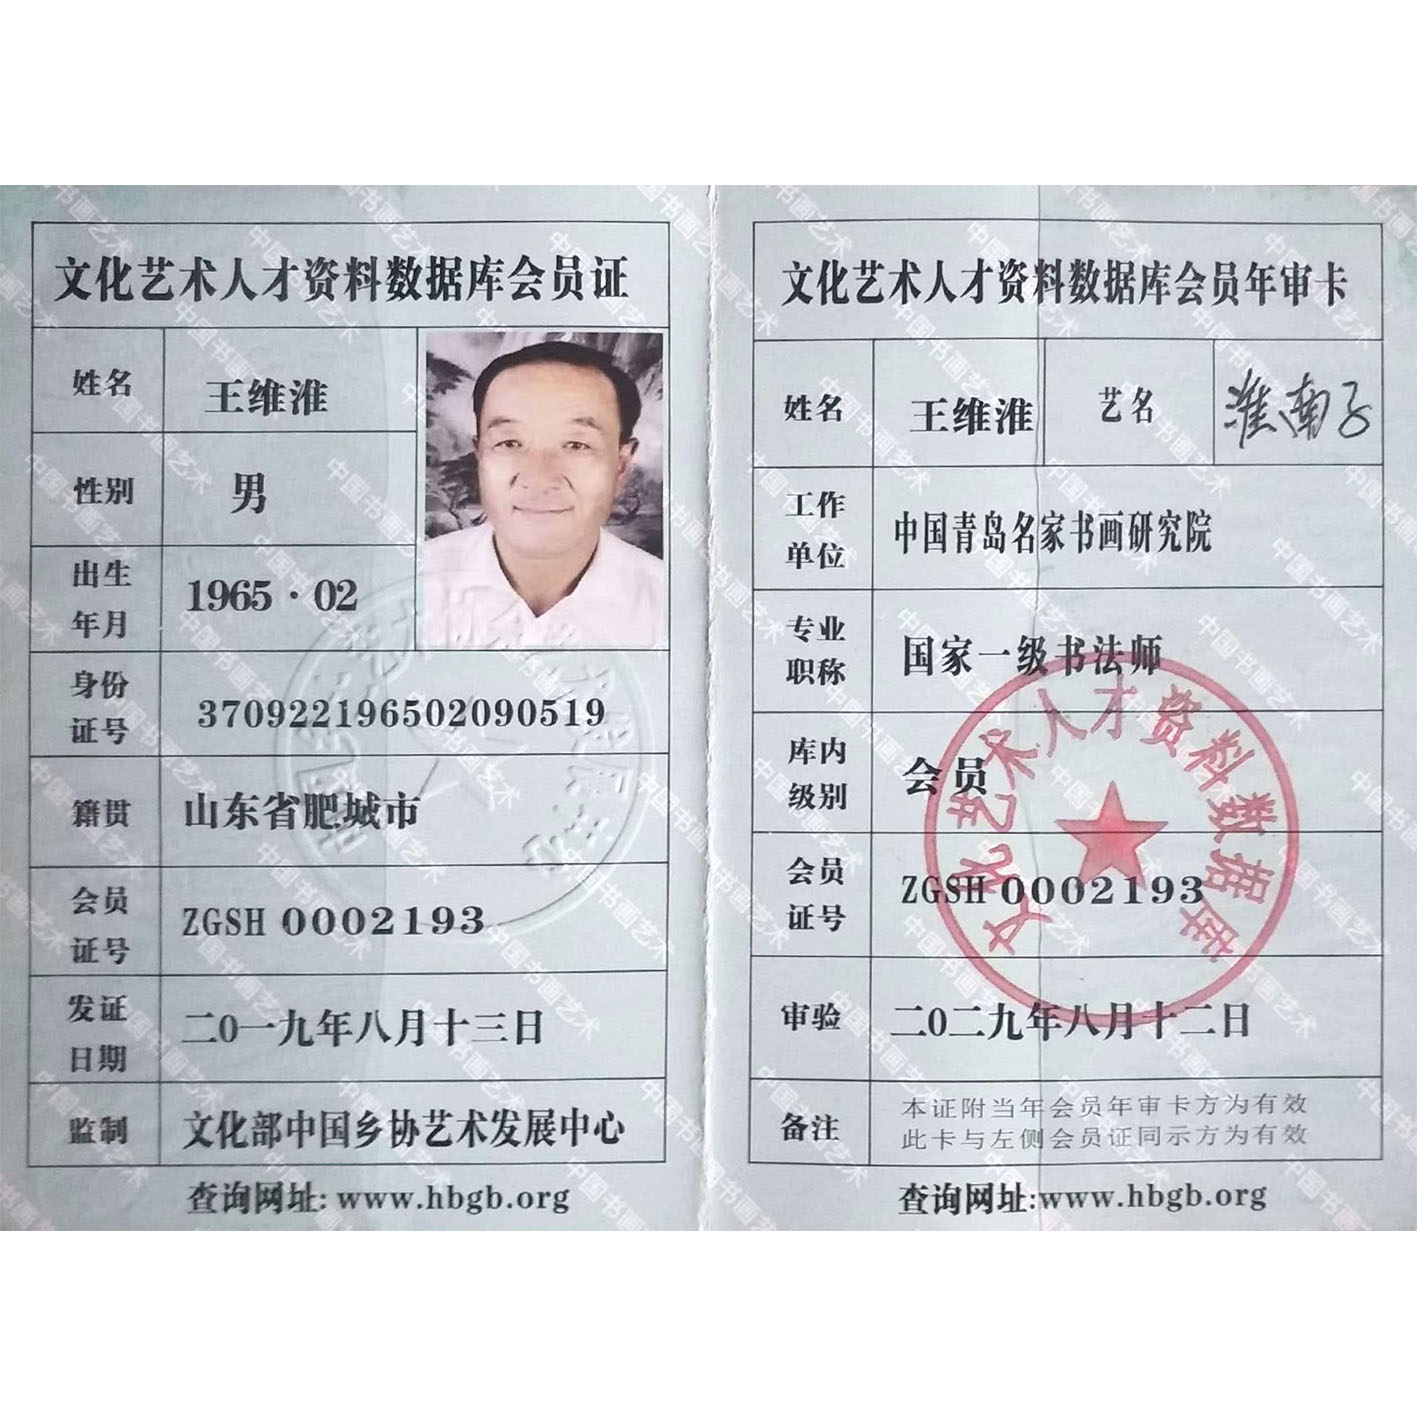 文化艺术人才资料数据库会员证
姓名 王维淮
性别 男
出生年月 1965·02
身份证号 370922196502090519
籍贯 山东省肥城市
会员证号 ZGSH 0002193
发证日期 二0一九年八月十三日
监制 文化部中国乡协艺术发展中心
查询网址: www.hbgb.org
文化艺术人才资料数据库会员年审卡
姓名 王维淮 艺名 淮南子
工作单位 中国青岛名家书画研究院
专业职称 国家一级书法师
库内级别 会员
会员证号 ZGSH 0002193
审验 二0二九年八月十二日
备注 本证附当年会员年审卡方为有效
此卡与左侧会员证同示方为有效
查询网址:www.hbgb.org
文化艺术人才资料数据库
中国书画艺术